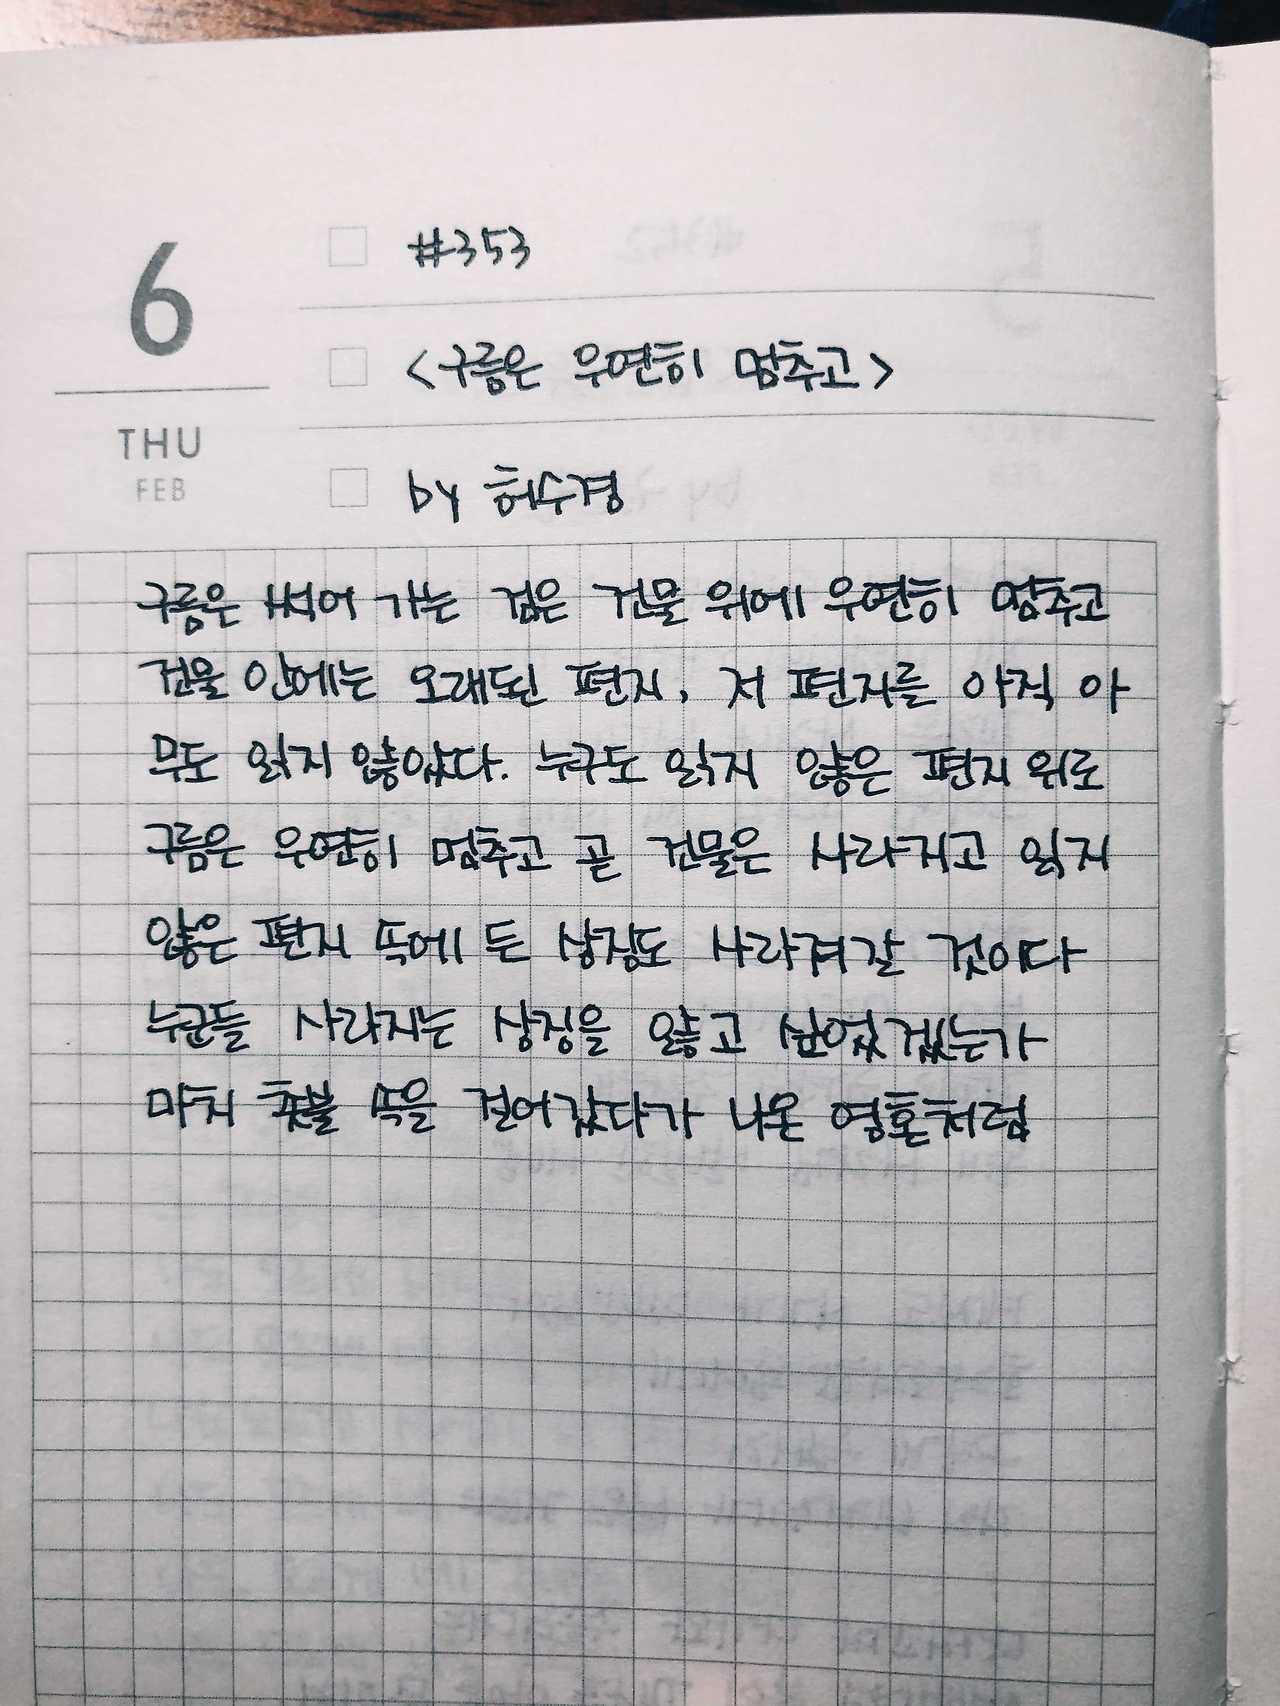 6
THU
FEB
#353
<구름은 우연히 멈추고>
by 허수경
구름은 썩어 가는 검은 건물 위에 우연히 멈추고
건물 안에는 오래된 편지, 저 편지를 아직 아
무도 읽지 않았다. 누구도 읽지 않은 편지 위로
구름은 우연히 멈추고 곧 건물은 사라지고 읽지
않은 편지 속에 든 상징도 사라져갈 것이다
누군들 사라지는 상징을 앓고 싶었겠는가
마치 촛불 속을 걸어갔다가 나온 영혼처럼